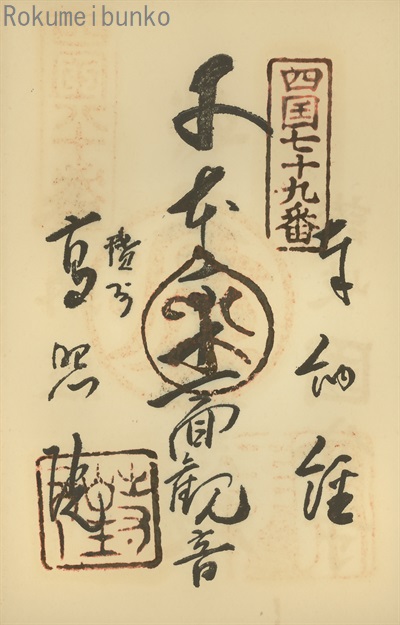 Rokumeibunko
四国七十九番
奉納経
十一面観音
讃州
高照院